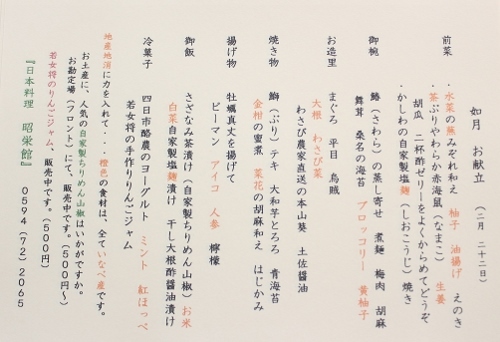 如月 お献立 (二月 二十二日)
前菜 ・水菜の蕪みぞれ和え 柚子 油揚げ えのき
・茶ぶりやわらか赤海鼠(なまこ) 生姜
胡瓜 二杯酢ゼリーをよくからめてどうぞ
・かしわの自家製塩麹(しおこうじ)焼き
御椀 鰆(さわら)の蒸し寄せ 煮麺 梅肉 胡麻
舞茸 桑名の海苔 ブロッコリー 黄柚子
お造里 まぐろ 平目 烏賊
大根 わさび菜
わさび農家直送の本山葵 土佐醤油
焼き物 鰤(ぶり)テキ 大和芋とろろ 青海苔
金柑の蜜煮 菜花の胡麻和え はじかみ
揚げ物 牡蠣真丈を揚げて
ピーマン アイコ 人参 檸檬
御飯 さざなみ茶漬け(自家製ちりめん山椒) お米
白菜自家製塩麹漬け 干し大根酢醤油漬け
冷菓子 四日市酪農のヨーグルト ミント 紅ほっぺ
若女将の手作りりんごジャム
地産地消に力を入れて・・・橙色の食材は、全ていなべ産です。
お土産に、人気の自家製ちりめん山椒はいかがですか。
お勘定場(フロント)にて、販売中です。(500円~)
若女将のりんごジャム、販売中です。(500円)
『日本料理 昭栄館』 0594(72)2065